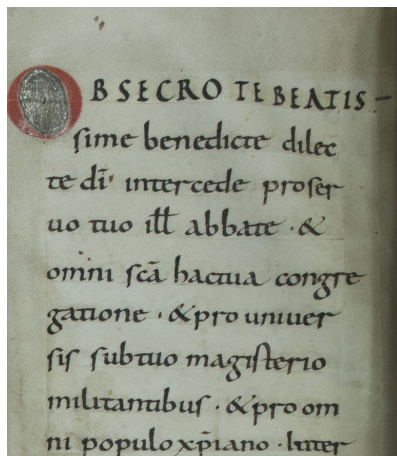 OBSECRO TE BEATIS-
sime benedicte dilec
te dī intercede proser
uo tuo ill abbate · &
omni scā hactua congre
gatione · & pro uniuer
sis subtuo magisterio
militantibus · & pro om
ni populo xp̄iano · Inter